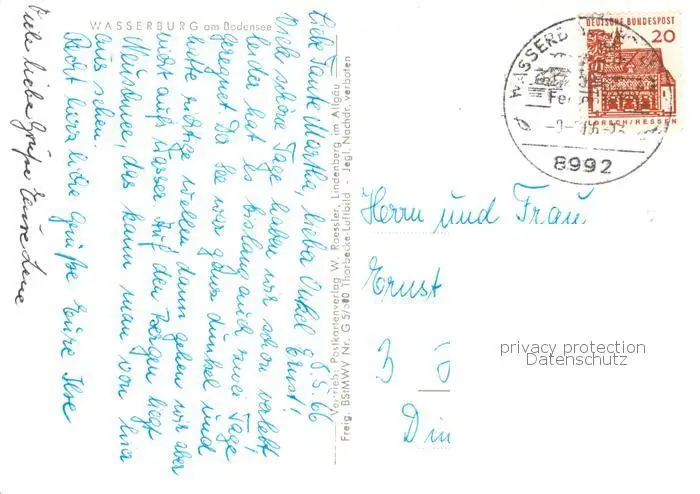 WASSERBURG am Bodensee
8.5.66
Liebe Tante Martha, lieber Onkel Ernst!
Viele schöne Tage haben wir schon verlebt
leider hat es bislang auch zwei Tage
geregnet. Da See war ganz dunkel und
hatte richtige Wellen, dann gehen wir aber
nicht aufs Wasser. Auf den Bergen liegt
Neuschnee, das kann man von hier
aus sehen.
Recht herzliche Grüße Eure Ilse
Viele liebe Grüße Eure Lene
Vertrieb: Postkartenverlag W. Roessler, Lindenberg im Allgäu
Freig. BStMWV Nr. G 5/300 Thorbecke-Luftbild - Jegl. Nachdr. verboten
DEUTSCHE BUNDESPOST
20
LORSCH/HESSEN
WASSERB
Fe
8992
Herrn und Frau
Ernst
3
Din
privacy protection
Datenschutz